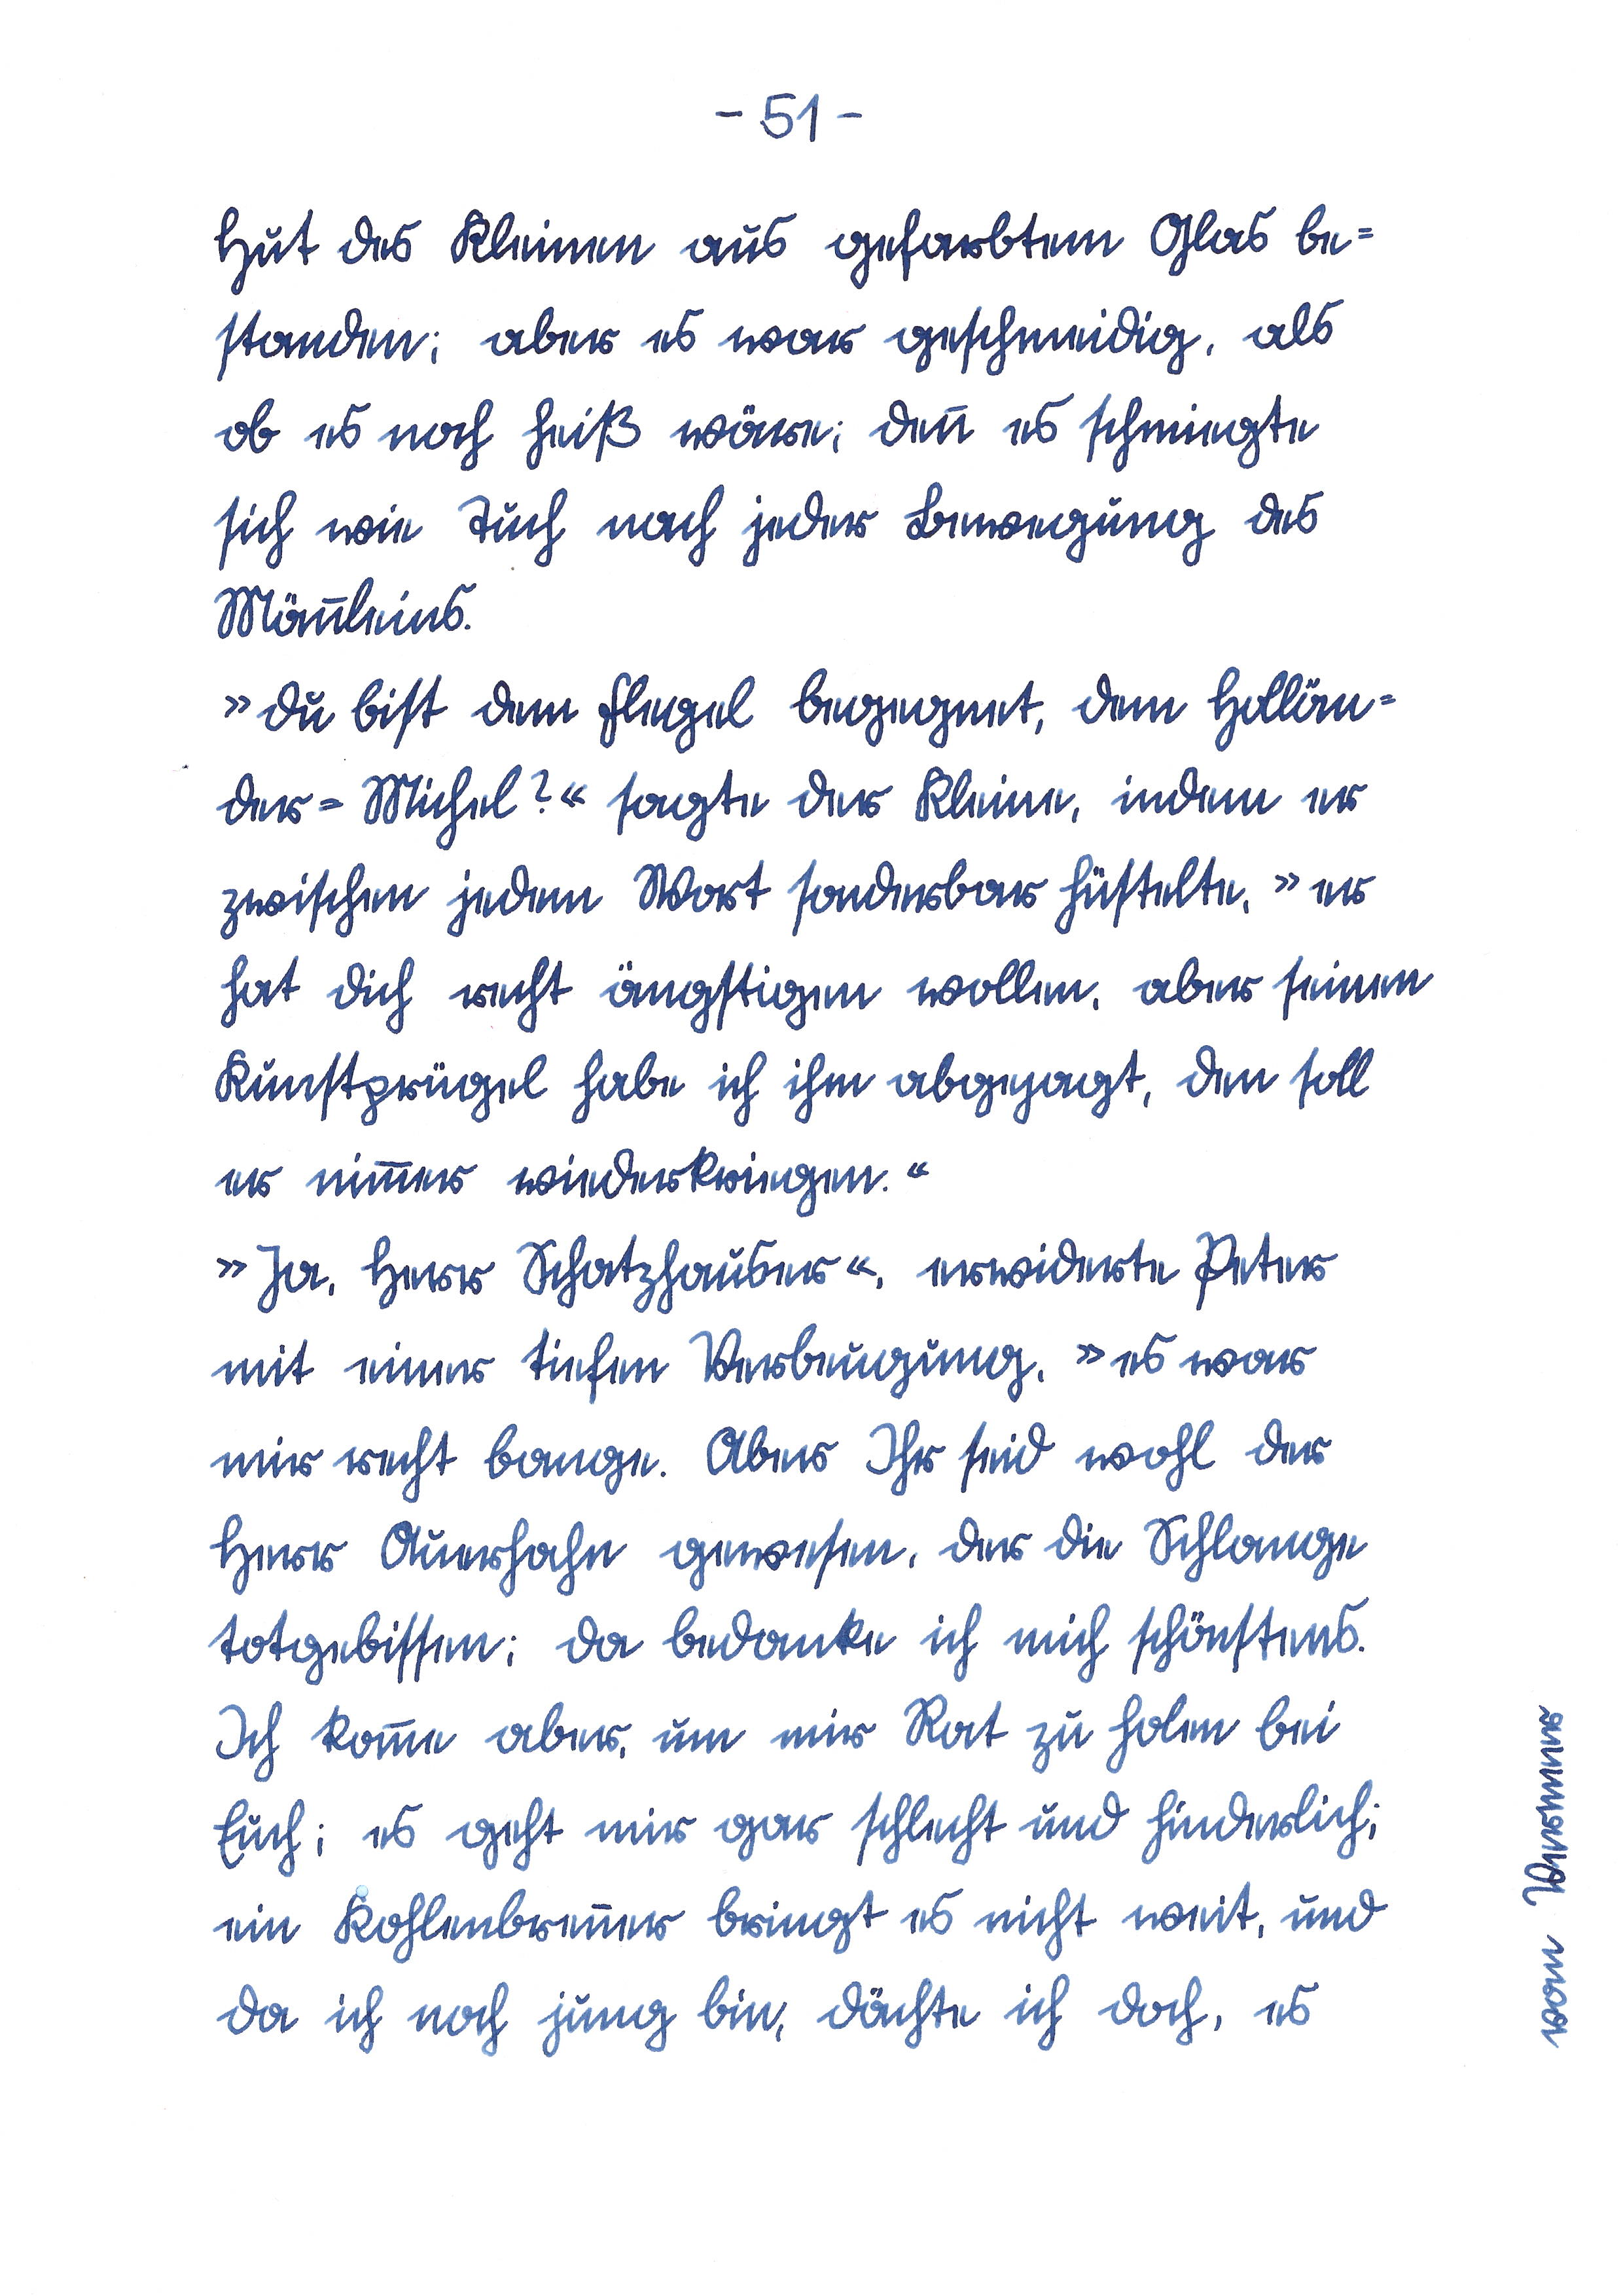 - 51 -
Hut des Kleinen aus gefarbtem Glas be=
standen; aber es war geschmeidig, als
ob es noch heiß wäre; den̅ es schmiegte
sich wie Tuch nach jeder Bewegung des
Män̅leins.
»Du bist dem Flegel begegnet, dem Hollän=
der=Michel?« sagte der Kleine, indem er
zwischen jedem Wort sonderbar hüstelte, »er
hat dich recht ängstigen wollen, aber seinen
Kunstprügel habe ich ihm abgejagt, den soll
er nim̅er wiederkriegen.«
»Ja, Herr Schatzhauser«, erwiderte Peter
mit einer tiefen Verbeugung, »es war
mir recht bange. Aber Ihr seid wohl der
Herr Auerhahn gewesen, der die Schlange
totgebissen; da bedanke ich mich schönstens.
Ich kom̅e aber, um mir Rat zu holen bei
Euch; es geht mir gar schlecht und hinderlich;
ein Kohlenbren̅er bringt es nicht weit, und
da ich noch jung bin, dächte ich doch, es